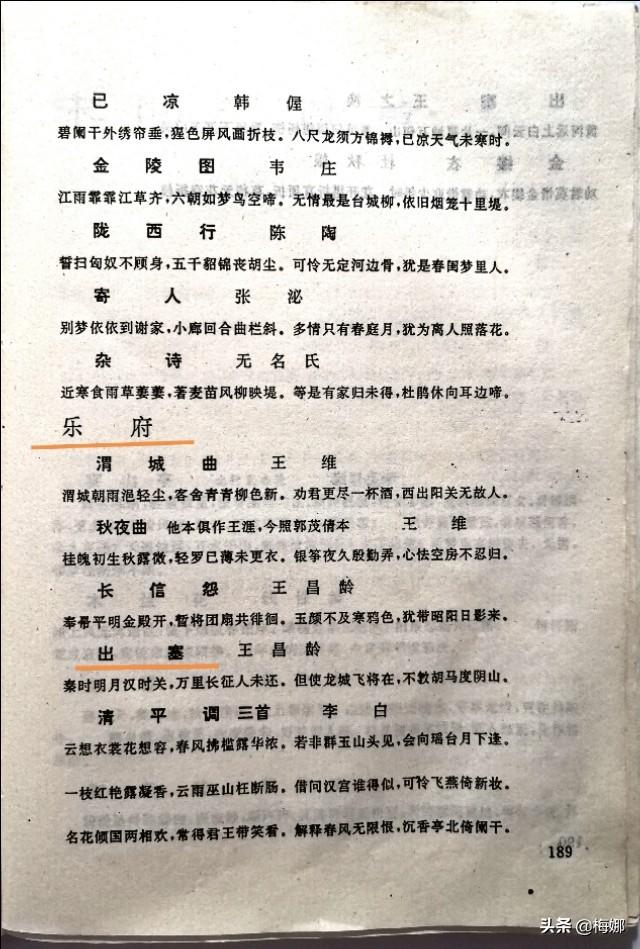 已凉 韩偓
碧阑干外绣帘垂，猩色屏风画折枝。八尺龙须方锦褥，已凉天气未寒时。
金陵图 韦庄
江雨霏霏江草齐，六朝如梦鸟空啼。无情最是台城柳，依旧烟笼十里堤。
陇西行 陈陶
誓扫匈奴不顾身，五千貂锦丧胡尘。可怜无定河边骨，犹是春闺梦里人。
寄人 张泌
别梦依依到谢家，小廊回合曲栏斜。多情只有春庭月，犹为离人照落花。
杂诗 无名氏
近寒食雨草萋萋，著麦苗风柳映堤。等是有家归未得，杜鹃休向耳边啼。
乐府
渭城曲 王维
渭城朝雨浥轻尘，客舍青青柳色新。劝君更尽一杯酒，西出阳关无故人。
秋夜曲 他本俱作王涯，今照郭茂倩本 王维
桂魄初生秋露微，轻罗已薄未更衣。银筝夜久殷勤弄，心怯空房不忍归。
长信怨 王昌龄
奉帚平明金殿开，暂将团扇共徘徊。玉颜不及寒鸦色，犹带昭阳日影来。
出塞 王昌龄
秦时明月汉时关，万里长征人未还。但使龙城飞将在，不教胡马度阴山。
清平调三首 李白
云想衣裳花想容，春风拂槛露华浓。若非群玉山头见，会向瑶台月下逢。
一枝红艳露凝香，云雨巫山枉断肠。借问汉宫谁得似，可怜飞燕倚新妆。
名花倾国两相欢，常得君王带笑看。解释春风无限恨，沉香亭北倚阑干。
189
头条 @梅娜